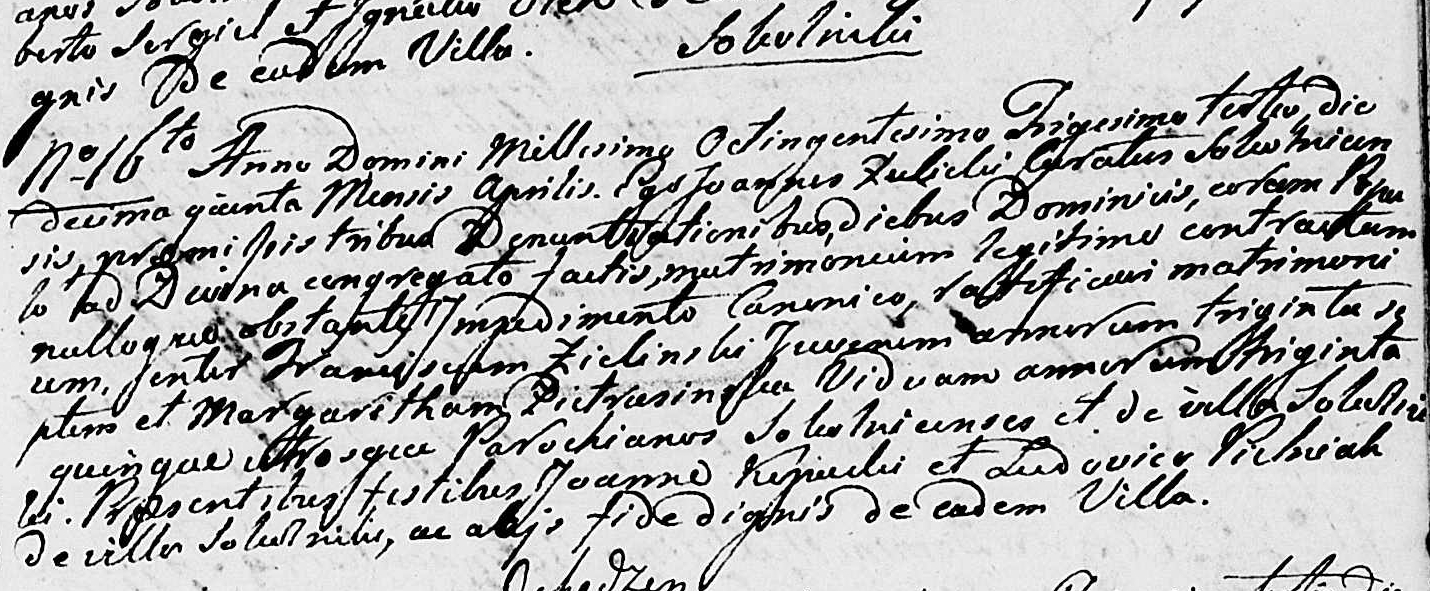 berto Sergiel et Ignatio
gnis De eadem Villa.
Sobolniki
No 16to Anno Domini Millesimo Octingentesimo Trigesimo tertio, die
decima quinta Mensis Aprilis. Ego Joannes Zulicki Curatus Sobotnicen
sis, praemissis tribus Denuntiationibus, diebus Dominicis, coram Popu
lo ad Divina congregato factis, matrimonium legitime contractum
nulloque obstante Impedimento Canonico, rattificavi matrimoni
um, inter Franciscum Zielinski Juvenem annorum triginta se
ptem et Margaritham Pietrasinska Viduam annorum triginta
quinque utrosque Parochianos Sobotnicenses et de villa Sobotni
ki. Praesentibus testibus Joanne et Ludovico Pichniak
de villa Sobotniki, ac alijs fide dignis de eadem Villa.